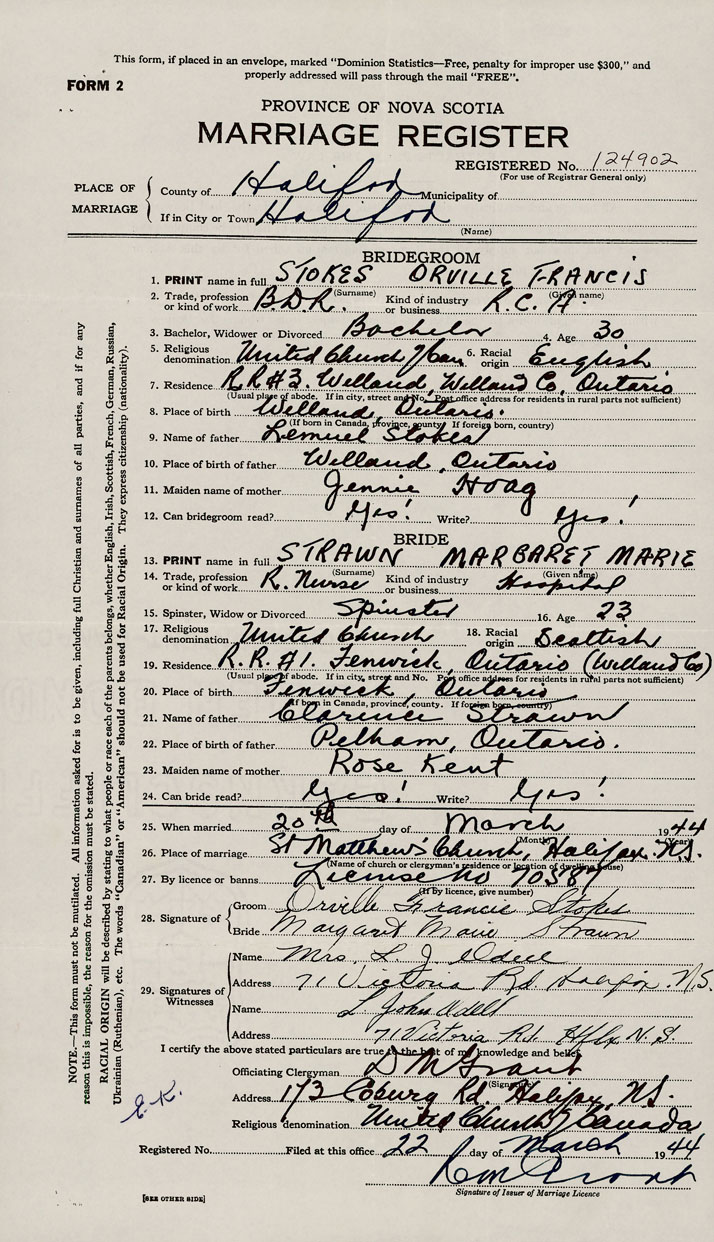 This form, if placed in an envelope, marked "Dominion Statistics—Free, penalty for improper use $300," and
properly addressed will pass through the mail "FREE".
FORM 2
PROVINCE OF NOVA SCOTIA
MARRIAGE REGISTER
REGISTERED No. 124902
(For use of Registrar General only)
PLACE OF MARRIAGE
County of Halifax Municipality of
If in City or Town Halifax
(Name)
BRIDEGROOM
1. PRINT name in full STOKES ORVILLE FRANCIS
(Surname) (Given name)
2. Trade, profession or kind of work B.D.R. Kind of industry or business R.C.A.
3. Bachelor, Widower or Divorced Bachelor 4. Age 30
5. Religious denomination United Church of Can. 6. Racial origin English
7. Residence R.R.#3. Welland, Welland Co, Ontario
(Usual place of abode. If in city, street and No. Post office address for residents in rural parts not sufficient)
8. Place of birth Welland, Ontario.
(If born in Canada, province, county. If foreign born, country)
9. Name of father Lemuel Stokes
10. Place of birth of father Welland, Ontario
11. Maiden name of mother Jennie Hoag
12. Can bridegroom read? Yes! Write? Yes!
BRIDE
13. PRINT name in full STRAWN MARGARET MARIE
(Surname) (Given name)
14. Trade, profession or kind of work R. Nurse Kind of industry or business Hospital
15. Spinster, Widow or Divorced Spinster 16. Age 23
17. Religious denomination United Church 18. Racial origin Scottish
19. Residence R.R.#1. Fenwick, Ontario (Welland Co)
(Usual place of abode. If in city, street and No. Post office address for residents in rural parts not sufficient)
20. Place of birth Fenwick, Ontario
(If born in Canada, province, county. If foreign born, country)
21. Name of father Clarence Strawn
22. Place of birth of father Pelham, Ontario.
23. Maiden name of mother Rose Kent
24. Can bride read? Yes! Write? Yes!
25. When married 20th day of March 1944
(Month) (Year)
26. Place of marriage St Matthew's Church, Halifax. N.S.
(Name of church or clergyman's residence or location of dwelling house)
27. By licence or banns License no 70587
(If by licence, give number)
28. Signature of
Groom Orville Francis Stokes
Bride Margaret Marie Strawn
29. Signatures of Witnesses
Name Mrs. L. J. Odell
Address 71 Victoria Rd. Halifax N.S.
Name L John Odell
Address 71 Victoria Rd. Hfx N.S.
I certify the above stated particulars are true to the best of my knowledge and belief.
Officiating Clergyman D M Grant
(Signature)
Address 173 Coburg Rd. Halifax, N.S.
Religious denomination United Church of Canada
Registered No. Filed at this office 22 day of March 1944
Grant
Signature of Issuer of Marriage Licence
[SEE OTHER SIDE]
NOTE.—This form must not be mutilated. All information asked for is to be given, including full Christian and surnames of all parties, and if for any
reason this is impossible, the reason for the omission must be stated.
RACIAL ORIGIN will be described by stating to what people or race each of the parents belongs, whether English, Irish, Scottish, French, German, Russian,
Ukrainian (Ruthenian), etc. The words "Canadian" or "American" should not be used for Racial Origin. They express citizenship (nationality).
E.K.